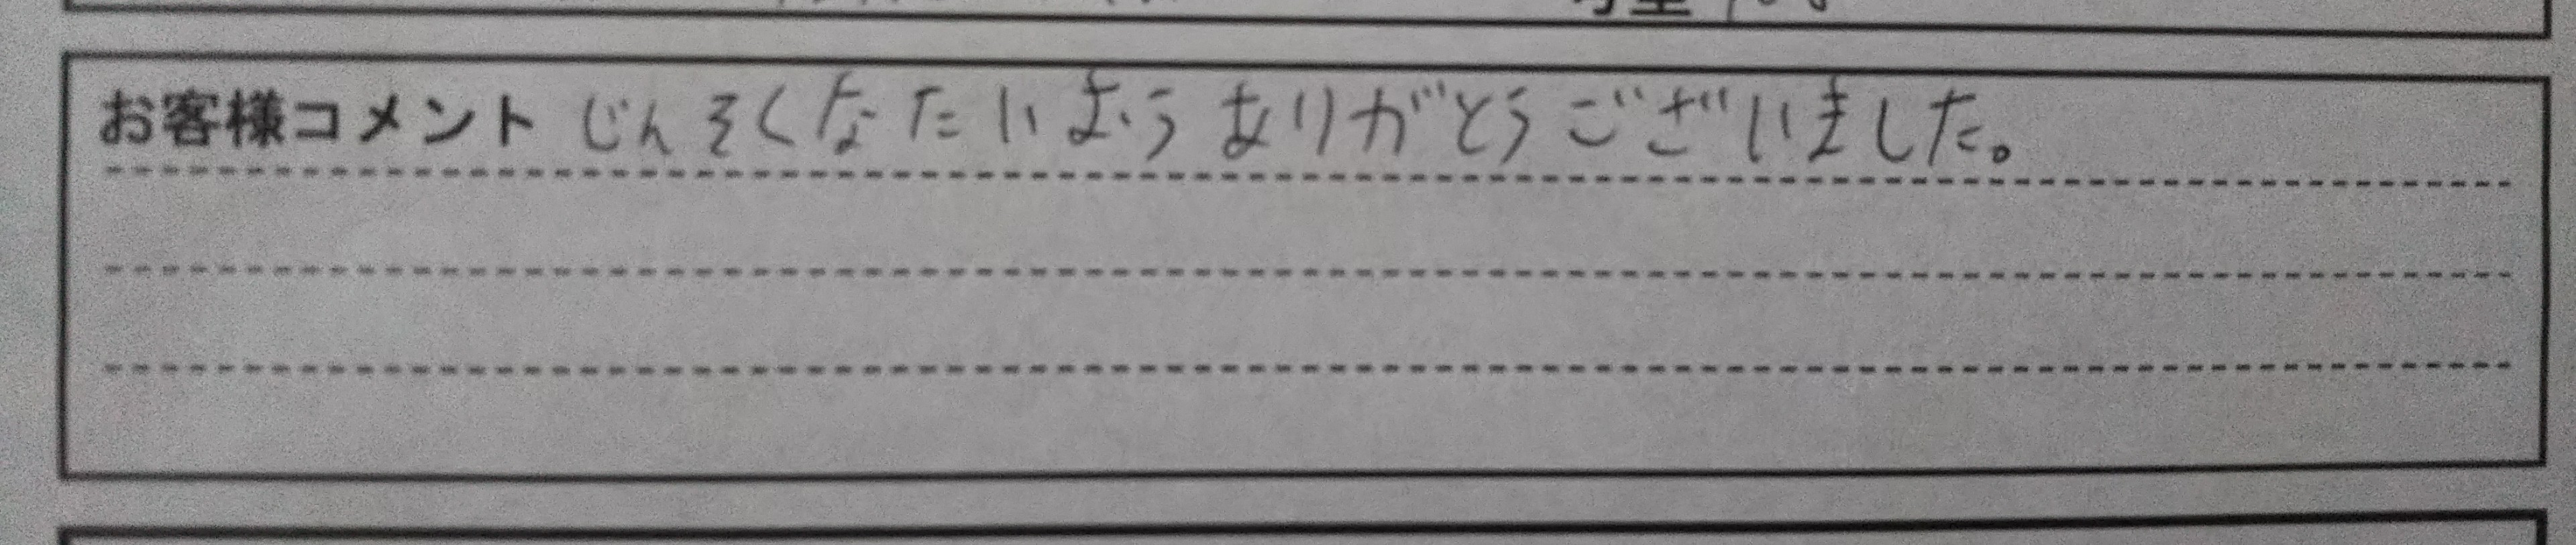 お客様コメント じんそくなたいおうありがとうございました。